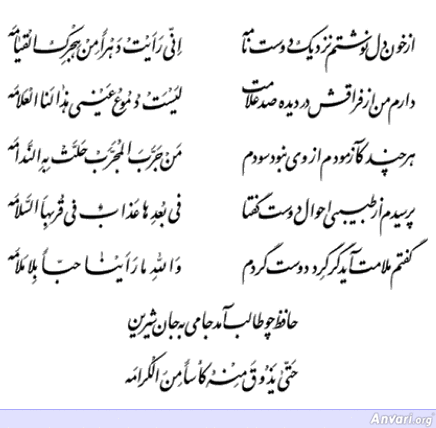 از خون دل نوشتم نزدیک دوست نامه اِنّی رَأَیْتُ دَهْراً مِنْ هِجْرِکَ القیامَه
دارم من از فراقش در دیده صد علامت لَیْسَتْ دُمُوعُ عَیْنی هذا لَنا العَلامَه
هر چند کآزمودم از وی نبود سودم مَنْ جَرَّبَ المُجَرَّبْ حَلَّتْ بِهِ النَّدامَه
پرسیدم از طبیبی احوال دوست گفتا فی بُعْدِها عَذابٌ فی قُرْبِهَا السَّلامَه
گفتم ملامت آید گر گرد دوست گردم وَ اللهِ ما رَأَیْنا حُبّاً بِلا مَلامَه
حافظ چو طالب آمد جامی به جان شیرین
حَتّی یَذُوقَ مِنْهُ کَأْساً مِنَ الْکَرامَه
Anvari.org